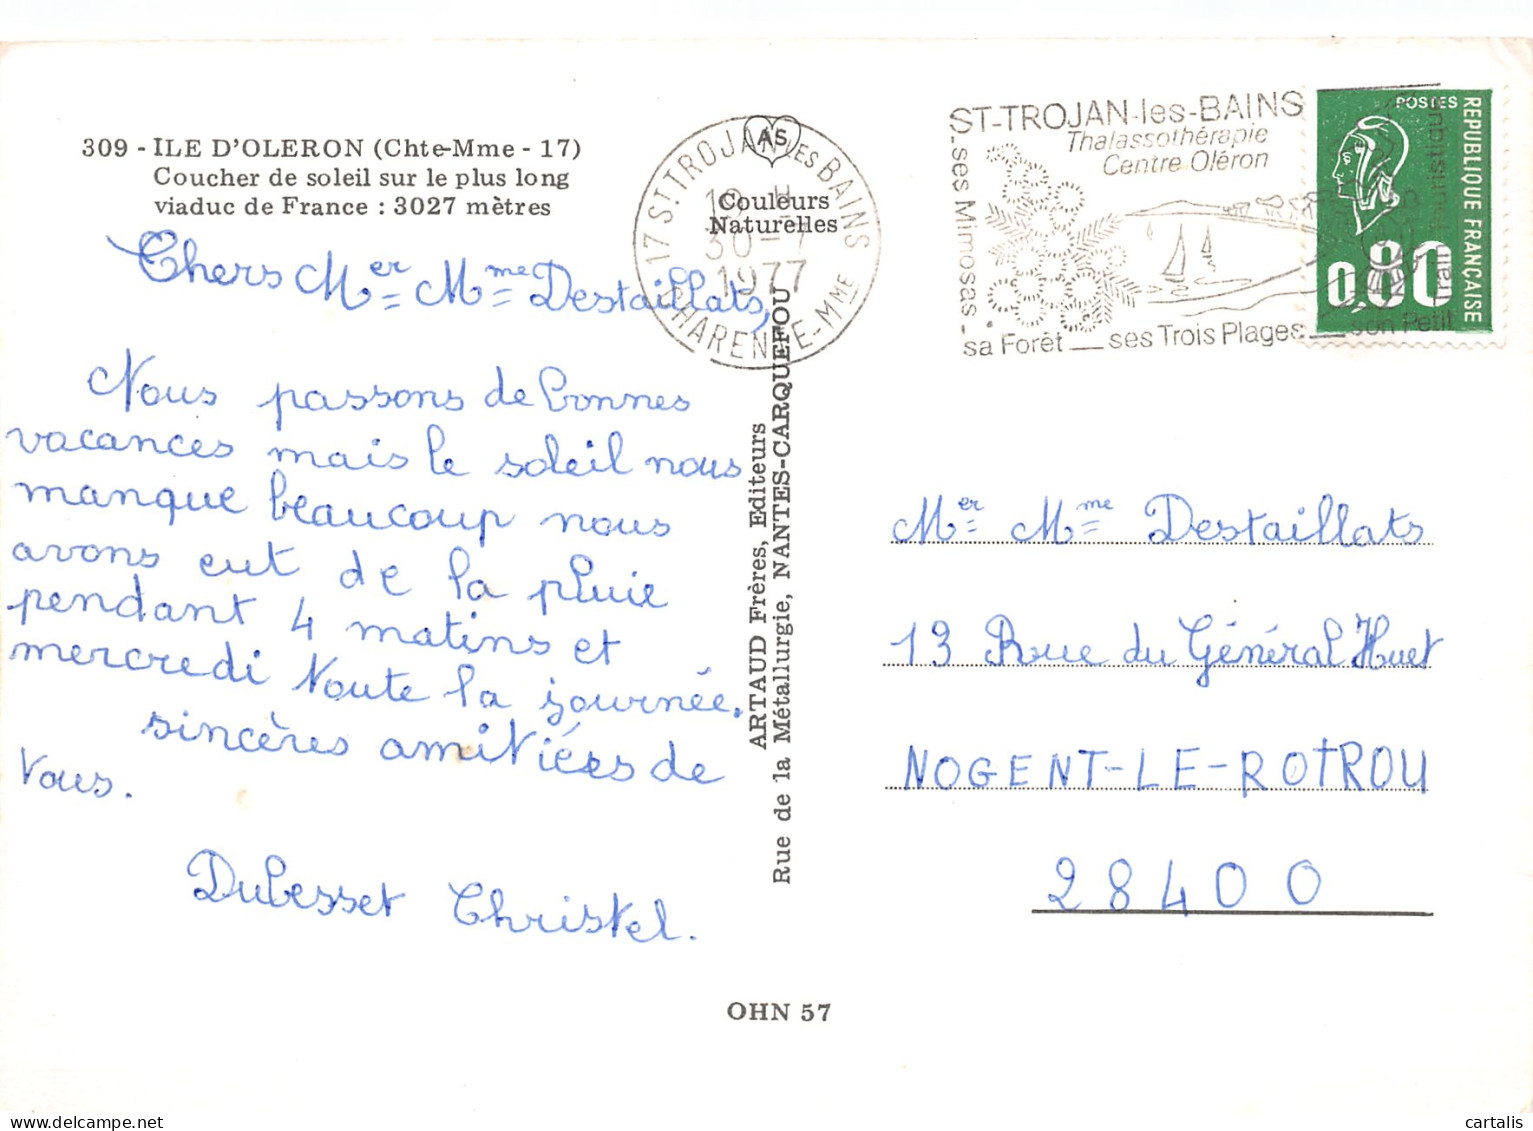 309 - ILE D'OLERON (Chte-Mme - 17)
Coucher de soleil sur le plus long
viaduc de France : 3027 mètres
Chers Mer= Mme= Destaillats,
Nous passons de bonnes
vacances mais le soleil nous
manque beaucoup nous
avons eut de la pluie
pendant 4 matins et
mercredi toute la journée.
sincères amitiées de
tous.
Dubesset Christel.
AS
Couleurs
Naturelles
17 ST TROJAN LES BAINS
30-7
1977
CHARENTE-MME
ARTAUD Frères, Editeurs
Rue de la Métallurgie, NANTES-CARQUEFOU
OHN 57
ST-TROJAN-les-BAINS
Thalassothérapie
Centre Oléron
ses Mimosas -
sa Forêt — ses Trois Plages — son Petit
Train
touristique
POSTES
REPUBLIQUE FRANÇAISE
0,80
Mer= Mme= Destaillats
13 Rue du Général Huet
NOGENT-LE-ROTROU
28400
cartalis